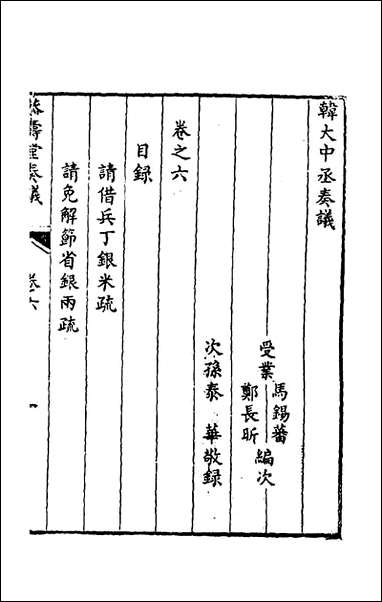 韓大中丞奏議
受業 馬錫蕃 鄭長昕 編次
次孫泰 華敬録
卷之六
目録
請借兵丁銀米疏
請免解節省銀兩疏
壽堂奏議 卷六 一